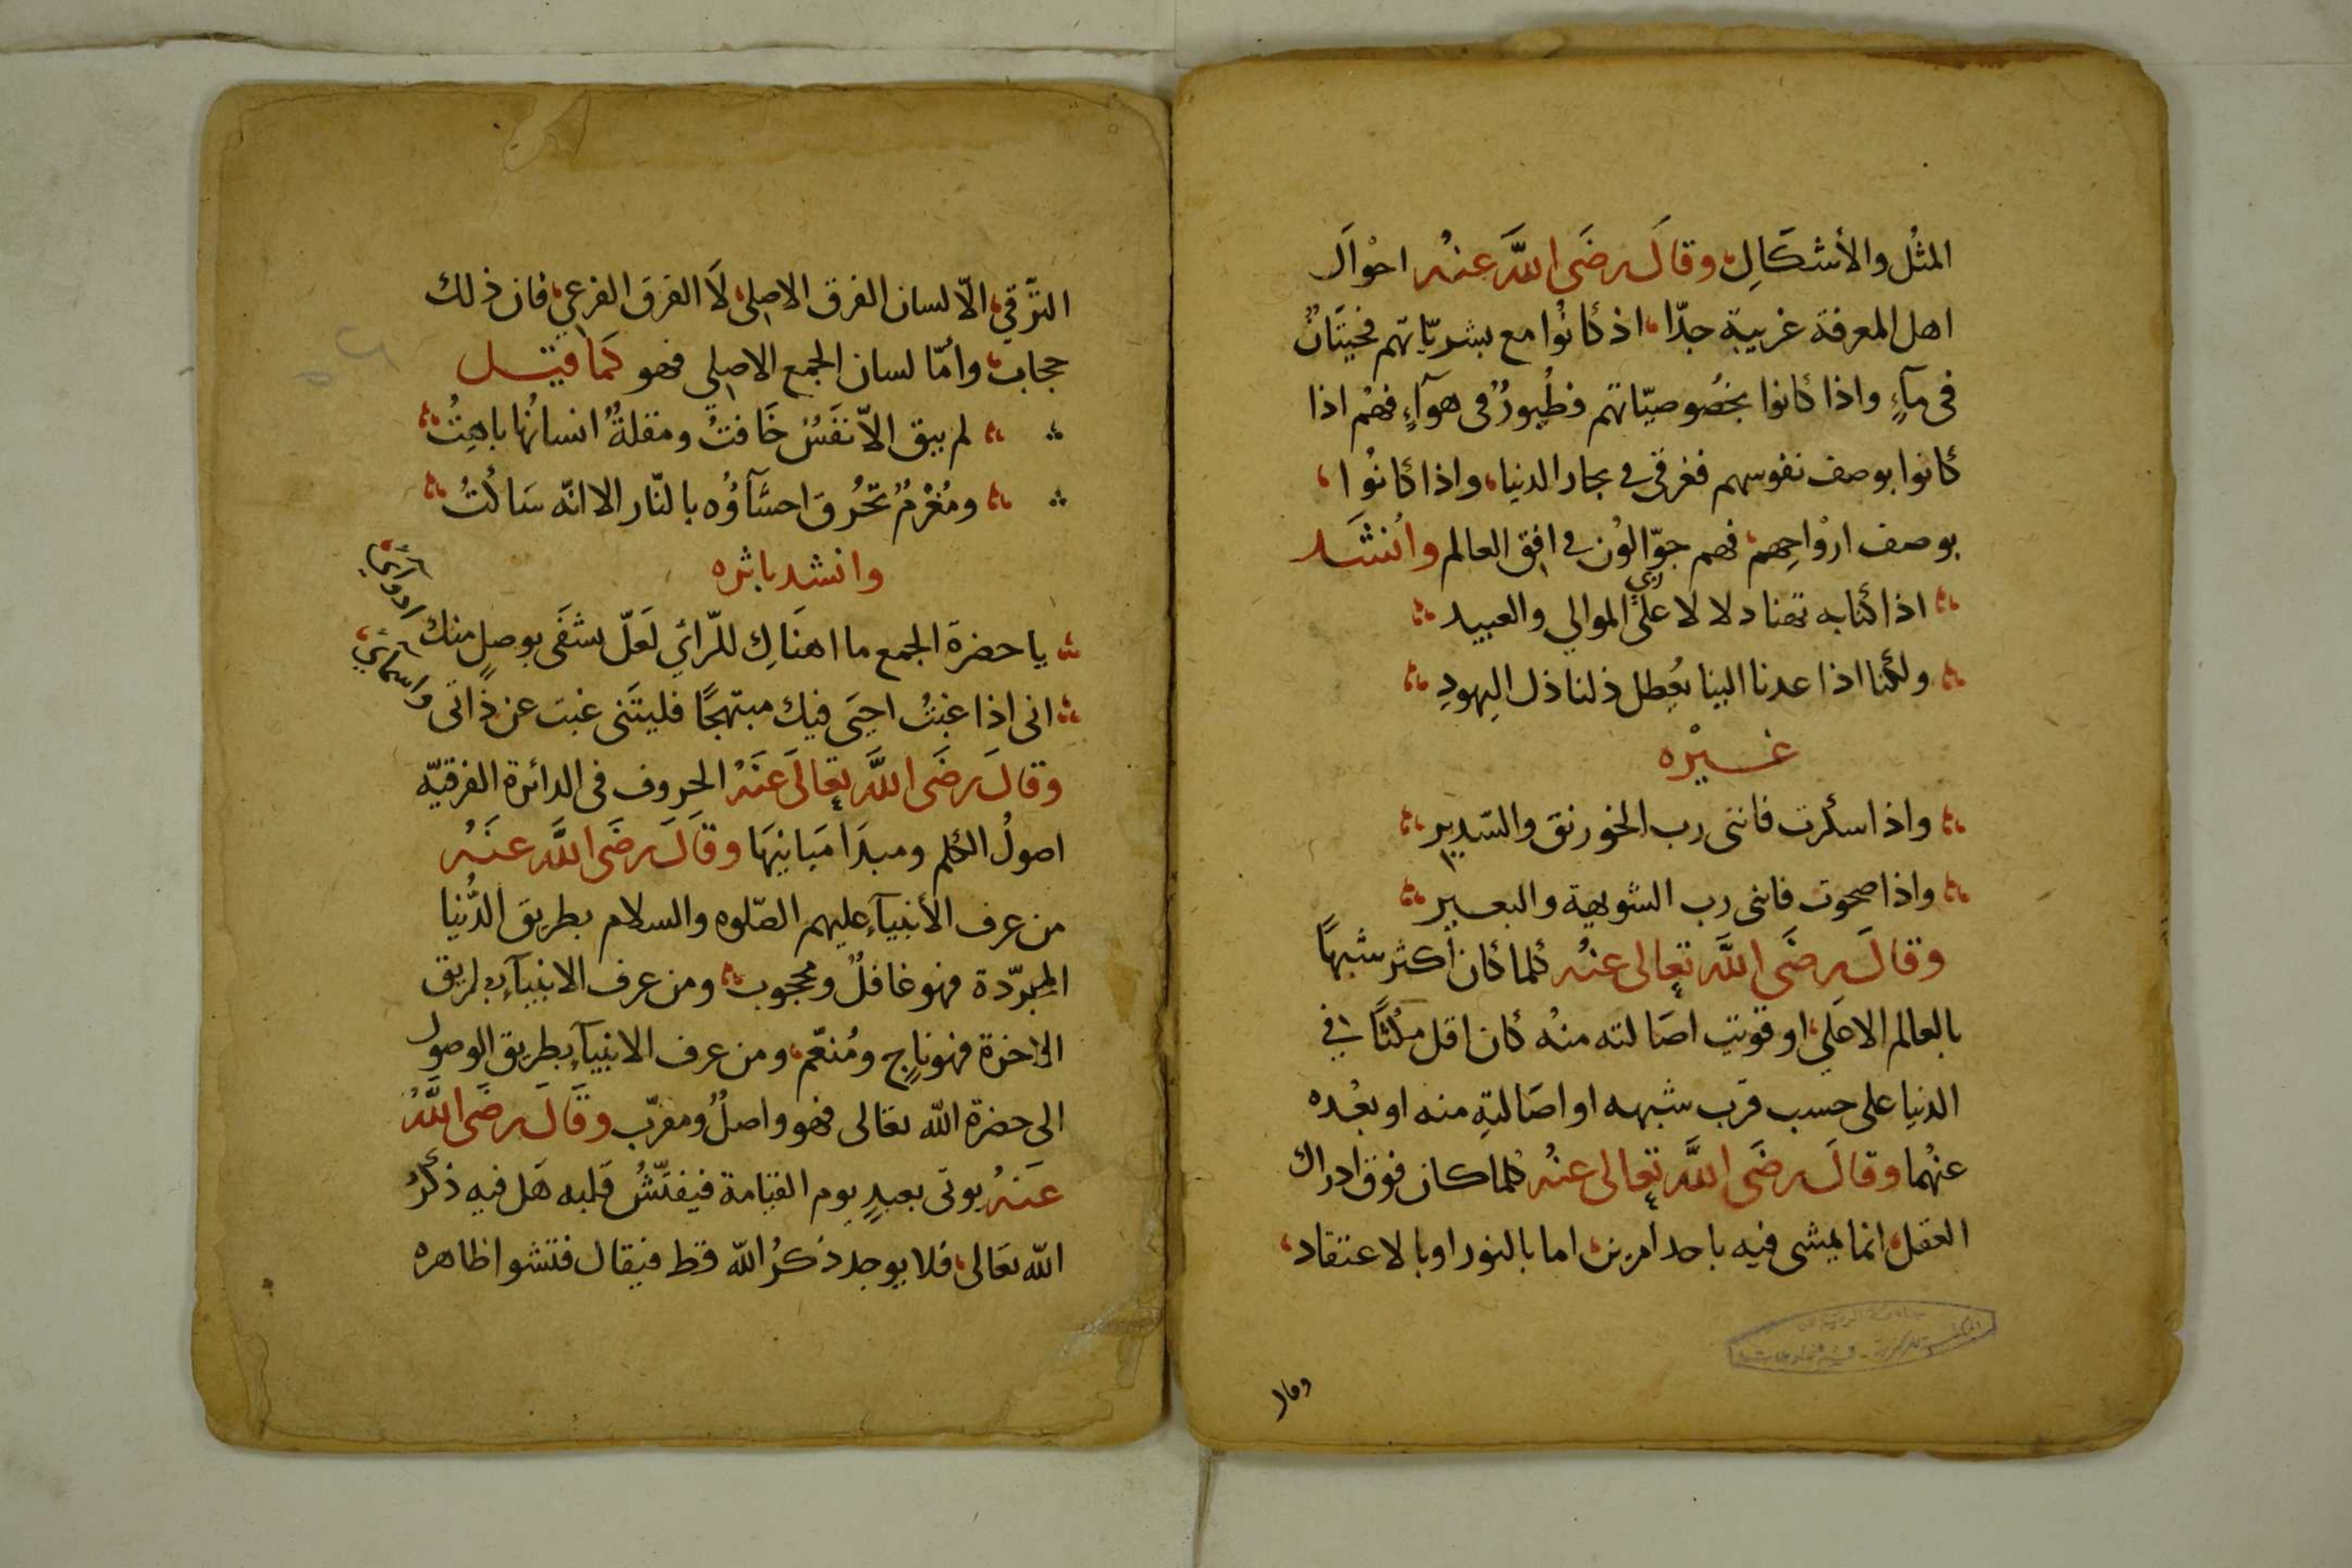 المثُل والأشكَالِ، وقالَ رضَى اللَّه عنهُ احْوَال
اهل المعرفة غريبة جدّا، اذ كانُوا مع بشريّاتهم فحيتَانٌ
فى مآءٍ واذا كانوا بخصُوصيّاتهم فطُيورٌ فى هوآءٍ، فهُم اذا
كانوا بوصف نفوسهم فغرقى فى بحار الدنيا، واذا كانُوا،
بوصف ارْواحِهم، فهم جوّالوُن فى افق العالم وانْشَد
اذا كنا به تهنا دلالا على الموالي والعبيد
ولكنا اذا عدنا الينا يعُطل ذلنا ذل اليهودِ
غيْره
واذا سكرت فاننى رب الخورنق والسّدير
واذا صحوت فاننى رب الشويهة والبعير
وقالَ رضَى اللَّه تعالى عنهُ كلما كان أكثر شبهًا
بالعالم الاعلى، او قويت اصَالته منهُ كان اقل مكثًا في
الدنيا على حسب قرب شبهه او اصَالتهِ منه او بعُده
عنهُما وقالَ رضَى اللَّه تعالى عنهُ كلما كان فوق ادراك
العقل، انما يمشى فيه باحد امرين، اما بالنور او بالاعتقاد،
وقال
الترَّقي، الاّ لسان الفرق الاصلي، لاَ الفرق الفرعي، فان ذلك
حجاب، وأمّا لسان الجمع الاصلي فهو كمَا قيل
لم يبق الاّ نفَسٌ خَافتٌ ومقلةٌ انسانُها باهِتُ
ومُغْرمٌ تحُرق احشَآؤُه بالنّار الا انّه سَاكتُ
وانشد باثره
يا حضرة الجمع ما اهنَاكِ للرّائي لَعلّ يشفَى بوصلٍ منك ادوائي
انى اذا غبتُ احيَى فيك مبتهجًا فليتَنى غبت عن ذاتى واسمائي
وقالَ رضَى اللَّه تعالَى عنَهُ الحروف فى الدائرة الفرقيّه
اصولُ الكلم ومبدَا مَبانيهَا وقاَلَ رضَى اللَّه عنَهُ
من عرف الأنبيآءِ عليهم الصّلوه والسلام بطريق الدُّنيا
المجرّدة فهو غافلٌ ومحجوب ومن عرف الانبيآءِ بطريق
الاخرة فهو ناجٍ ومُنعّم، ومن عرف الانبيآءِ بطريق الوصول
الى حضرة اللّه تعالى فهو واصلٌ ومقرّب وقَالَ رضَى اللَّهُ
عنَهُ يوتى بعبدٍ يوم القيَامة فيفتّشُ قلبه هَل فيه ذكرُ
اللّه تعَالى، فلا يوجد ذكرُ اللّه قط فيقال فتشوا ظاهره